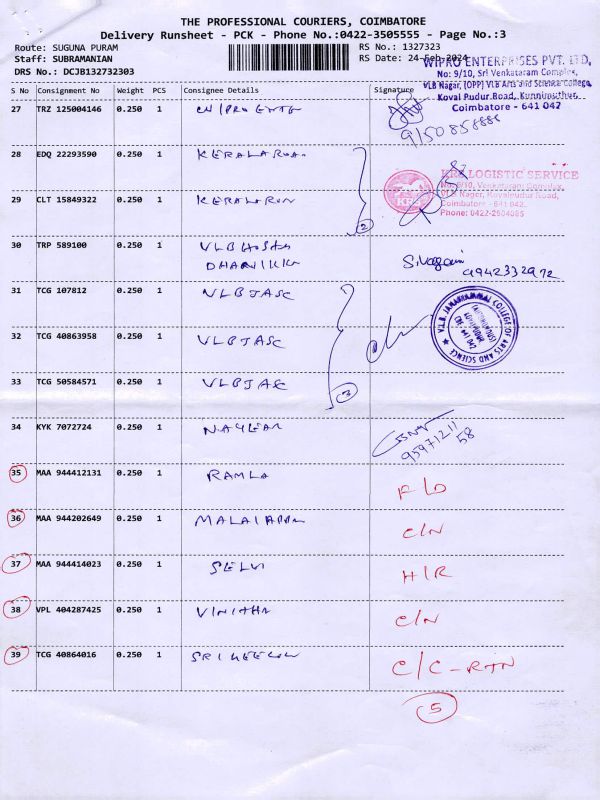 THE PROFESSIONAL COURIERS, COIMBATORE
Delivery Runsheet - PCK - Phone No.:0422-3505555 - Page No.:3
Route: SUGUNA PURAM RS No.: 1327323
Staff: SUBRAMANIAN RS Date: 24-Feb-2024
DRS No.: DCJB132732303
WIPRO ENTERPRISES PVT. LTD,
No: 9/10, Sri Venkataram Complex,
VLB Nagar, (OPP) VLB Arts and Science College,
Kovai Pudur Road, Kuniamuthur,
Coimbatore - 641 042
S No Consignment No Weight PCS Consignee Details Signature
27 TRZ 125004146 0.250 1
28 EDQ 22293590 0.250 1 KERALA
29 CLT 15849322 0.250 1 KERALA
2
LOGISTIC SERVICE
No: 9/10, Venkataram Complex,
VLB Nagar, Kovaipudur Road,
Coimbatore - 641 042.
Phone: 0422-2604085
30 TRP 589100 0.250 1 VLB
9942332972
31 TCG 107812 0.250 1 VLBJASC
32 TCG 40863958 0.250 1 VLBJASC
33 TCG 50584571 0.250 1 VLBJASC
3
V.L.B. JANAKIAMMAL COLLEGE OF ARTS AND SCIENCE
34 KYK 7072724 0.250 1
35 MAA 944412131 0.250 1 RAMLA F/D
36 MAA 944202649 0.250 1 C/N
37 MAA 944414023 0.250 1 SELVI H/R
38 VPL 404287425 0.250 1 VINITHA C/N
39 TCG 40864016 0.250 1 C/C-RTN
5